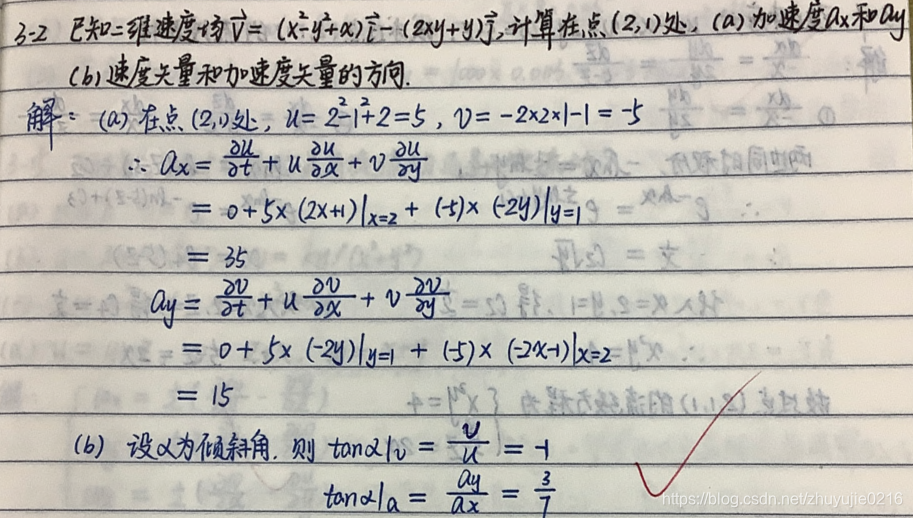 3-2 已知二维速度场 V⃗ = (x²-y²+x)i⃗ - (2xy+y)j⃗, 计算在点 (2,1) 处, (a) 加速度 ax 和 ay
(b) 速度矢量和加速度矢量的方向.
解: (a) 在点 (2,1) 处, u = 2²-1²+2 = 5, v = -2×2×1-1 = -5
∴ ax = ∂u/∂t + u ∂u/∂x + v ∂u/∂y
= 0 + 5×(2x+1)|x=2 + (-5)×(-2y)|y=1
= 35
ay = ∂v/∂t + u ∂v/∂x + v ∂v/∂y
= 0 + 5×(-2y)|y=1 + (-5)×(-2x-1)|x=2
= 15
(b) 设α为倾斜角. 则 tanα|v = v/u = -1
tanα|a = ay/ax = 3/7
https://blog.csdn.net/zhuyujie0216